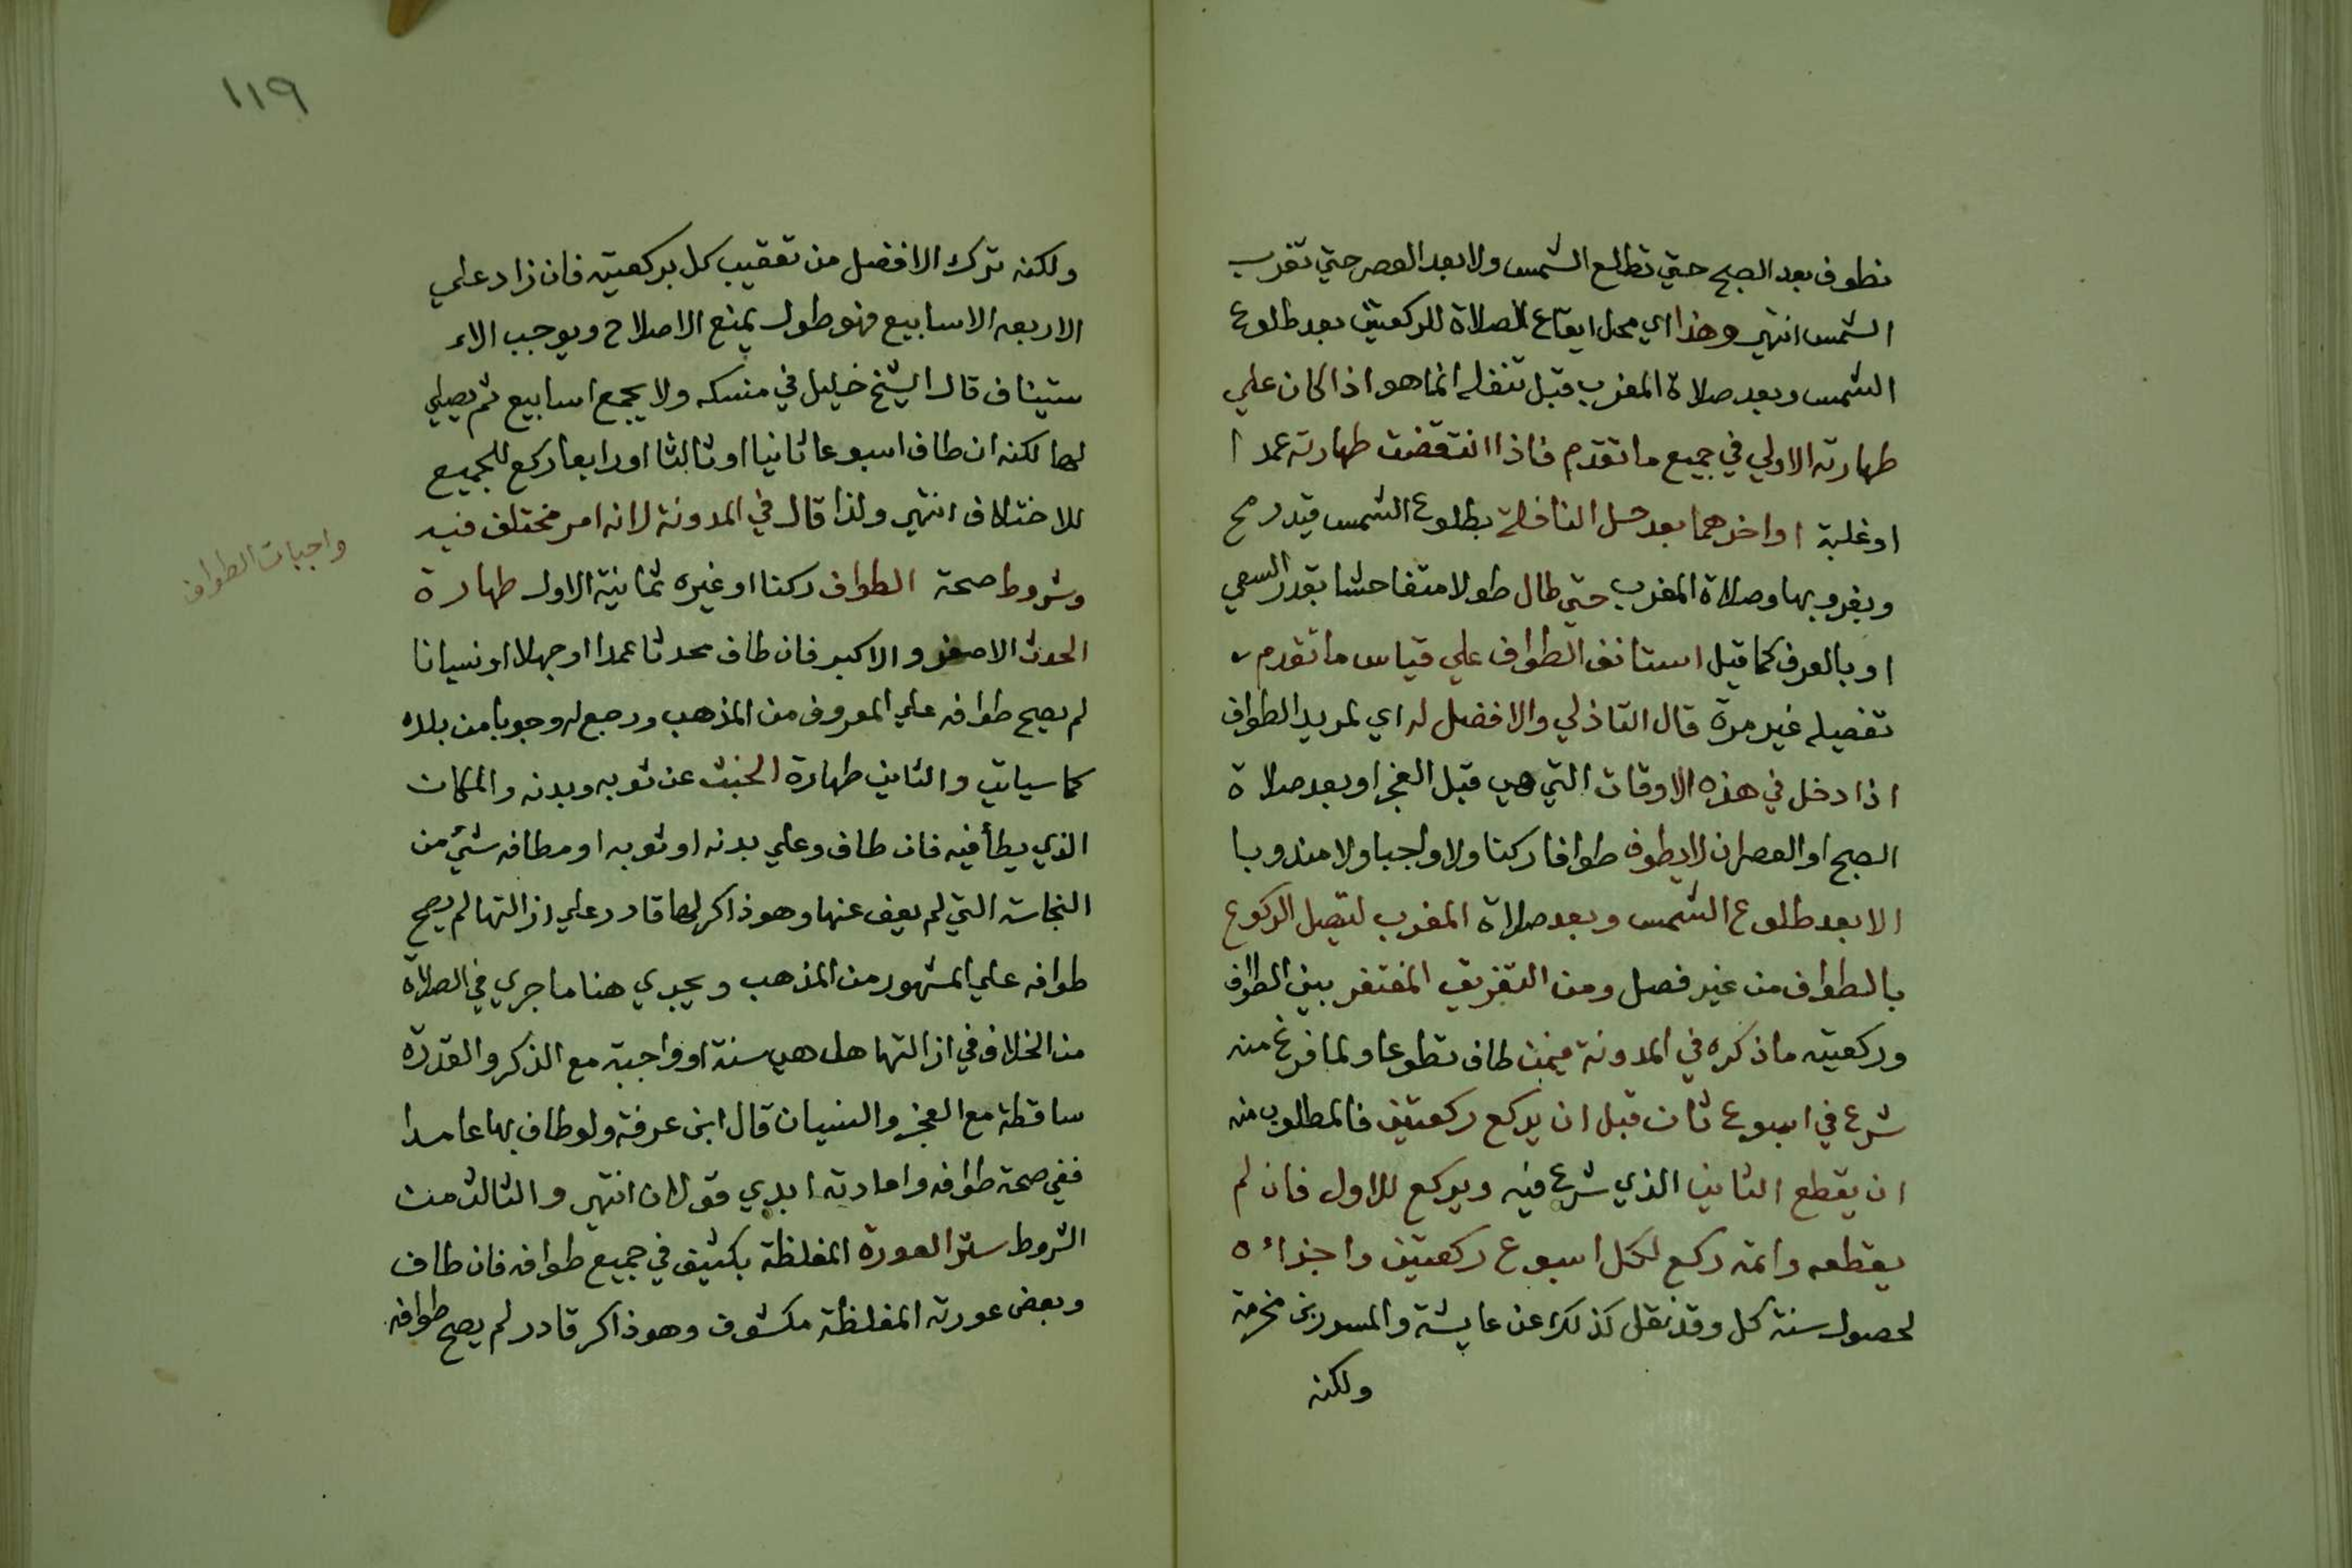 نطوف بعد الصبح حتي تطلع الشمس ولا بعد العصر حتي تغرب
الشمس انتهي وهذا اي محل ايقاع الصلاة للركعتين بعد طلوع
الشمس وبعد صلاة المغرب قبل تنفله انما هو اذا كان علي
طهارته الاولي في جميع ما تقدم فاذا انتقضت طهارته عمدا
او غلبة او اخرهما بعد حل النافلة بطلوع الشمس قيد رمح
وبغروبها وصلاة المغرب حتي طال طولا متفاحشا بقدر السعي
او بالعرف كما قيل استانف الطواف علي قياس ما تقدم
تفصيله غير مرة قال التاذلي والافضل له اي لمريد الطواف
اذا دخل في هذه الاوقات التي هي قبل الفجر او بعد صلاة
الصبح او العصر ان لا يطوف طوافا ركنا ولا واجبا ولا مندوبا
الا بعد طلوع الشمس وبعد صلاة المغرب ليتصل الركوع
بالطواف من غير فصل ومن التفريق المغتفر بين الطواف
وركعتيه ما ذكره في المدونة فيمن طاف تطوعا ولما فرغ منه
شرع في اسبوع ثان قبل ان يركع ركعتين فالمطلوب منه
ان يقطع الثاني الذي شرع فيه ويركع للاول فان لم
يقطعه واتمه ركع لكل اسبوع ركعتين واجزائه
لحصول سنة كل وقد نقل كذلك عن عايشة والمسور بن مخرمة
ولكنه
١١٩
ولكنه ترك الافضل من تعقيب كل بركعتيه فان زاد علي
الاربعه الاسابيع فهو طول يمنع الاصلاح ويوجب الاء
ستيناف قال الشيخ خليل في منسكه ولا يجمع اسابيع ثم يصلي
لها لكنه ان طاف اسبوعا ثانيا او ثالثا او رابعا ركع للجميع
للاختلاف انتهي ولذا قال في المدونة لانه امر مختلف فيه
وشروط صحة الطواف ركنا او غيره ثمانية الاول طهارة
الحدث الاصغر والاكبر فان طاف محدثا عمدا او جهلا او نسيانا
لم يصح طوافه علي المعروف من المذهب ورجع له وجوبا من بلده
كما سياتي والثاني طهارة الخبث عن ثوبه وبدنه والمكان
الذي يطأ فيه فان طاف وعلي بدنه او ثوبه او مطافه شئ من
النجاسة التي لم يعف عنها وهو ذاكر لها قادر علي ازالتها لم يصح
طوافه علي المشهور من المذهب ويجري هنا ما جري في الصلاة
من الخلاف في ازالتها هل هي سنة او واجبة مع الذكر والقدرة
ساقطة مع العجز والنسيان قال ابن عرفة ولو طاف بها عامدا
ففي صحة طوافه واعادته ابدي قولان انتهي والثالث من
الشروط ستر العورة المغلظة بكثيف في جميع طوافه فان طاف
وبعض عورته المغلظة مكشوف وهو ذاكر قادر لم يصح طوافه
واجبات الطواف